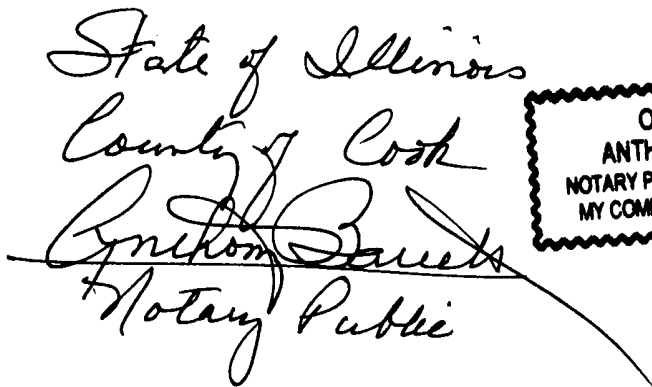 State of Illinois
County of Cook
Notary Public
O
ANTH
NOTARY P
MY COM